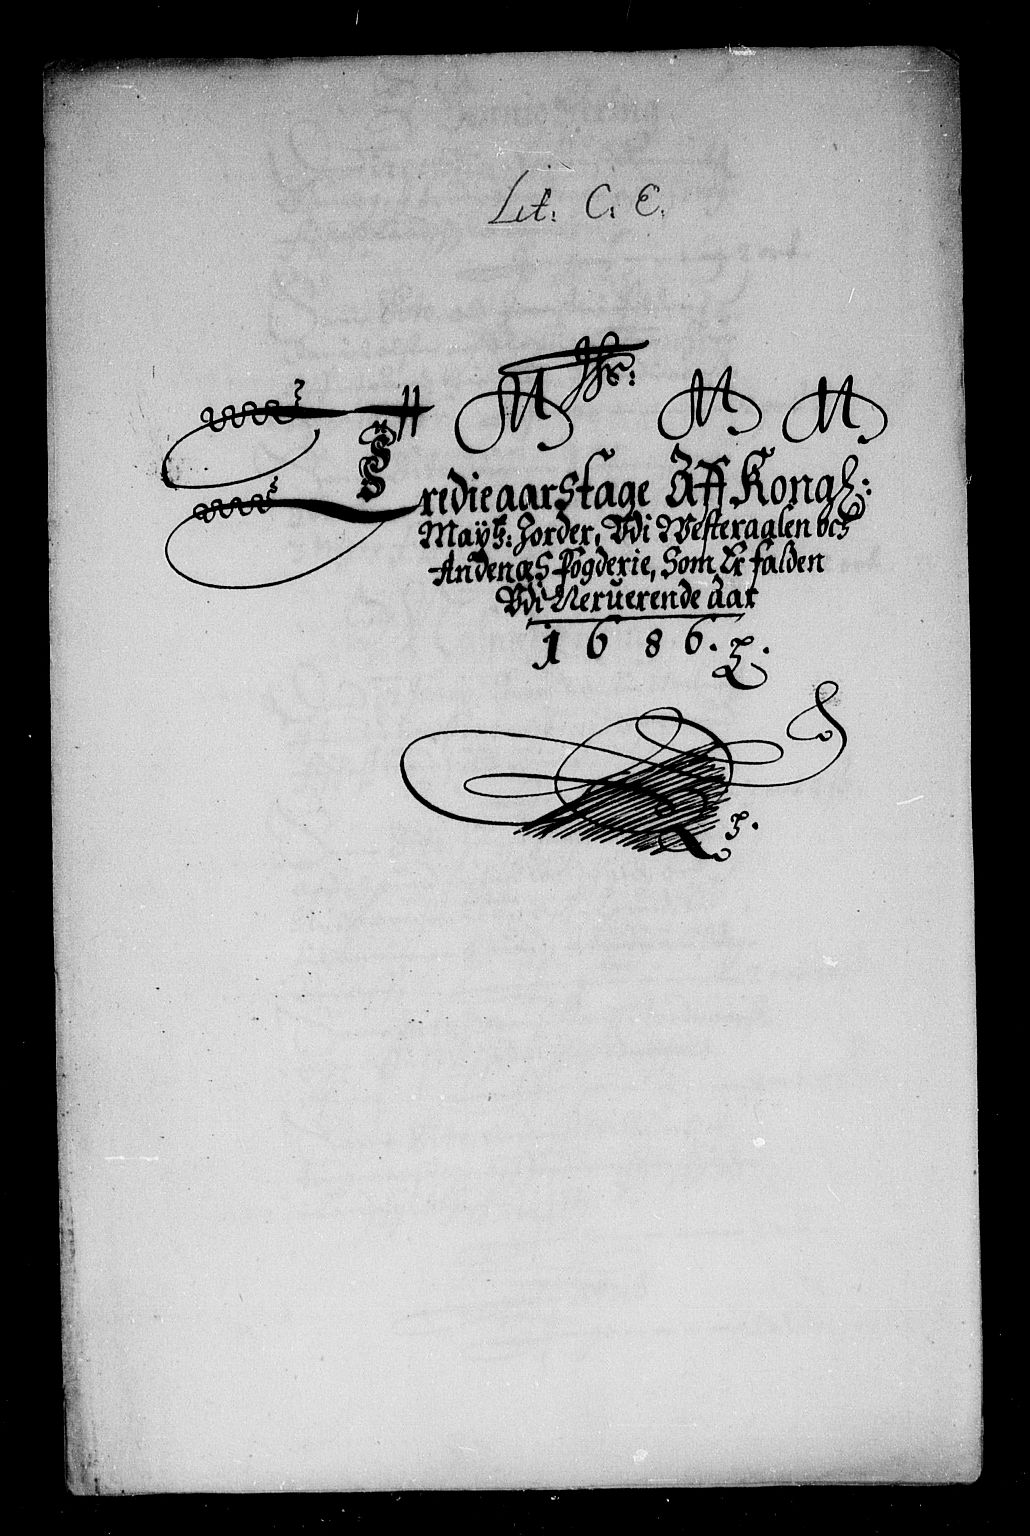 Lit: C: E.
Tredie aars tage Aff Kongl:
Maÿtz: Jorder, Udi Westeraalen och
Andenæs Fogderie, Som Er falden
Udi Neruerende Aar
1686.